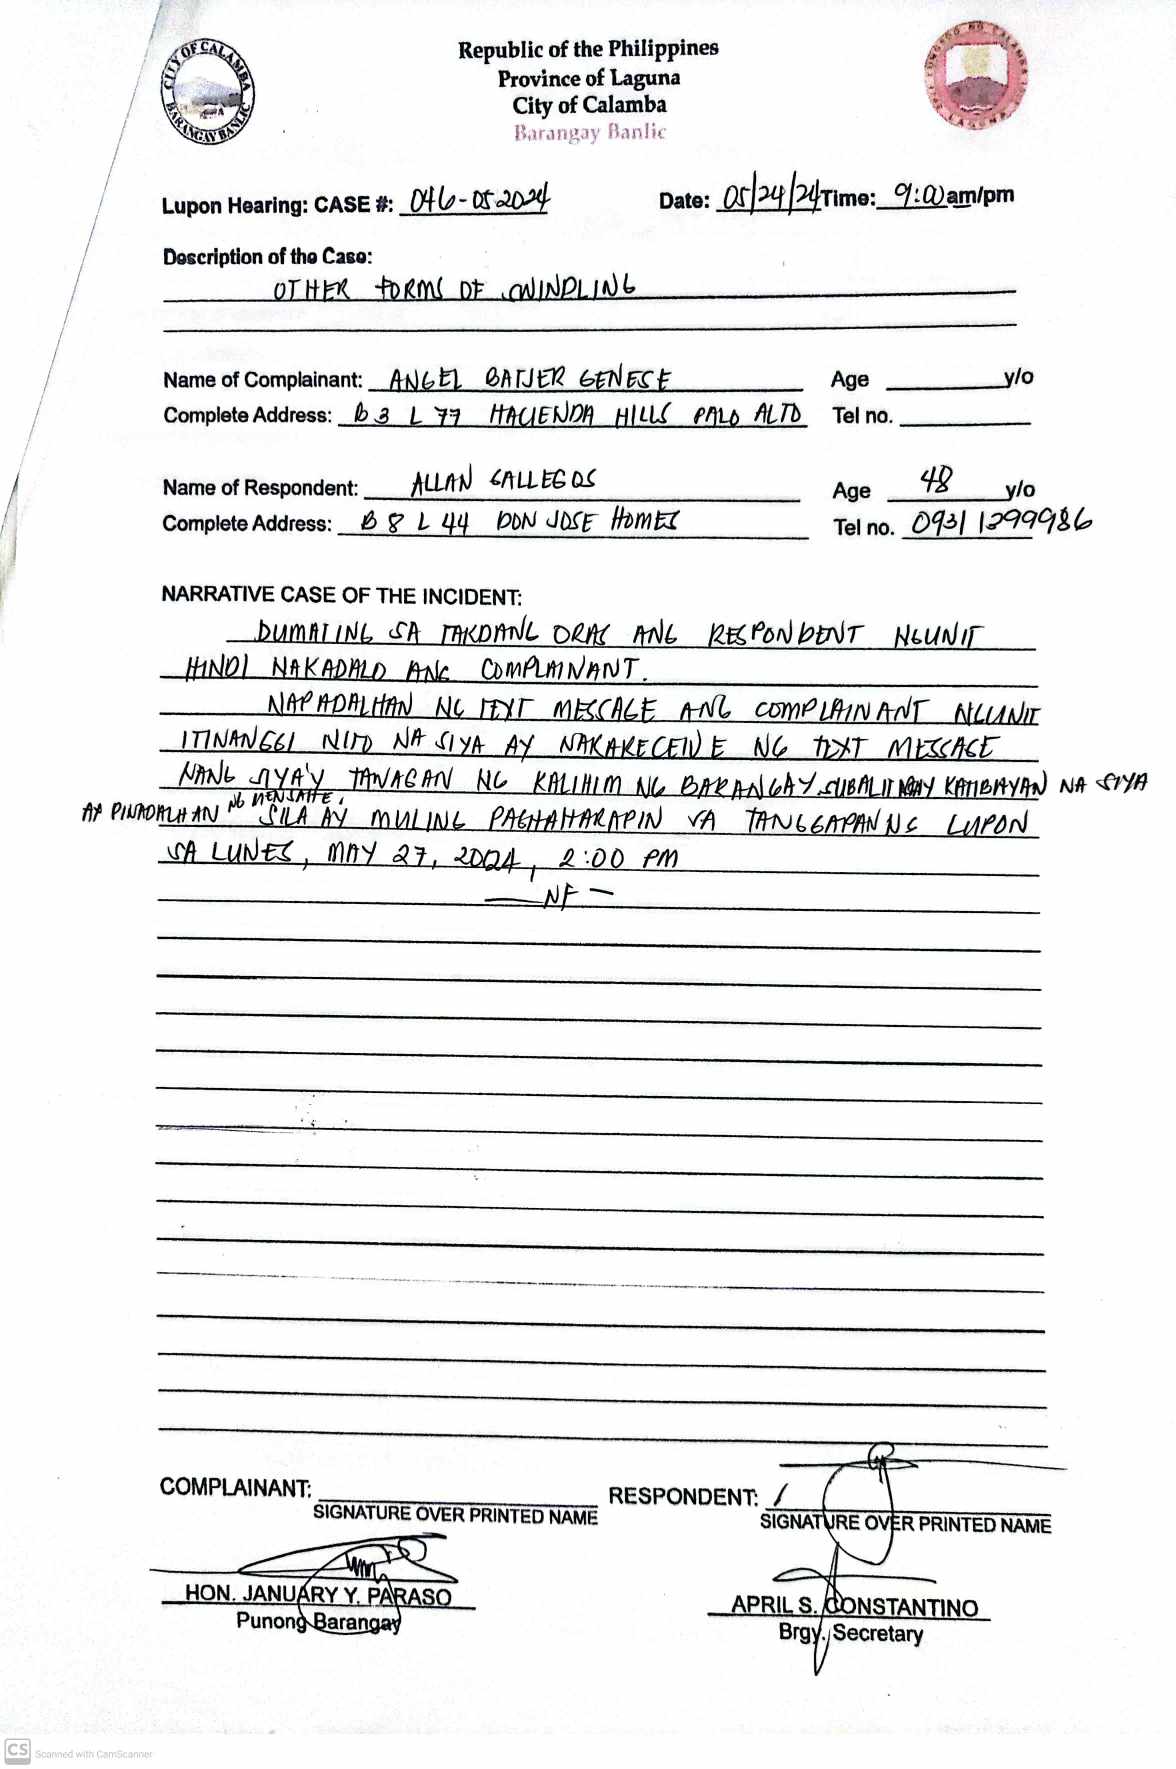 CITY OF CALAMBA
BARANGAY BANLIC
Republic of the Philippines
Province of Laguna
City of Calamba
Barangay Banlic
Lupon Hearing: CASE #: 046-05-2024 Date: 05/24/24 Time: 9:00 am/pm
Description of the Case:
OTHER FORMS OF SWINDLING
Name of Complainant: ANGEL BATJER GENESE Age y/o
Complete Address: B 3 L 77 HACIENDA HILLS PALO ALTO Tel no.
Name of Respondent: ALLAN GALLEGOS Age 48 y/o
Complete Address: B 8 L 44 DON JOSE HOMES Tel no. 09311299986
NARRATIVE CASE OF THE INCIDENT:
DUMATING SA TAKDANG ORAS ANG RESPONDENT NGUNIT
HINDI NAKADALO ANG COMPLAINANT.
NAPADALHAN NG TEXT MESSAGE ANG COMPLAINANT NGUNIT
ITINANGGI NITO NA SIYA AY NAKARECEIVE NG TEXT MESSAGE
NANG SIYA'Y TAWAGAN NG KALIHIM NG BARANGAY, SUBALIT MAY KATIBAYAN NA SIYA
AY PINADALHAN NG MENSAHE. SILA AY MULING PAGHAHARAPIN SA TANGGAPAN NG LUPON
SA LUNES, MAY 27, 2024, 2:00 PM
— NF —
COMPLAINANT: RESPONDENT:
SIGNATURE OVER PRINTED NAME SIGNATURE OVER PRINTED NAME
HON. JANUARY Y. PARASO APRIL S. CONSTANTINO
Punong Barangay Brgy. Secretary
CS Scanned with CamScanner